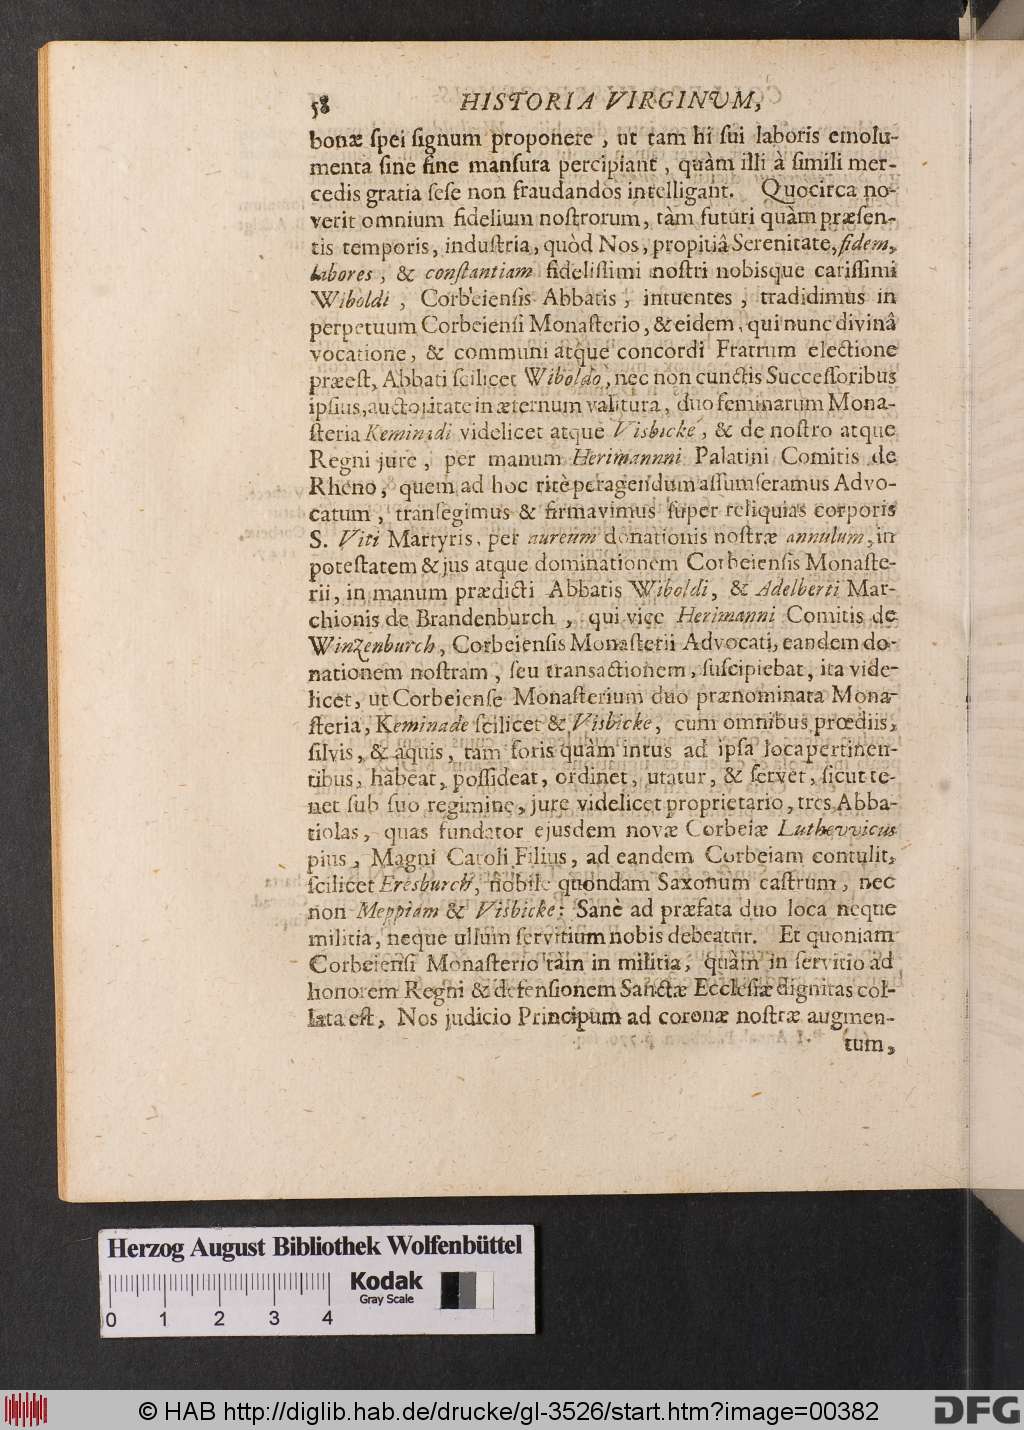 58 HISTORIA VIRGINUM,
bonæ ſpei ſignum proponere, ut tam hi ſui laboris emolu-
menta ſine fine manſura percipiant, quàm illi à ſimili mer-
cedis gratia ſeſe non fraudandos intelligant. Quocirca no-
verit omnium fidelium noſtrorum, tàm futuri quàm præſen-
tis temporis, induſtria, quòd Nos, propitiâ Serenitate, fidem,
labores, & conſtantiam fideliſſimi noſtri nobisque cariſſimi
Wiboldi, Corbeienſis Abbatis, intuentes, tradidimus in
perpetuum Corbeienſi Monaſterio, & eidem, qui nunc divinâ
vocatione, & communi atque concordi Fratrum electione
præeſt, Abbati ſcilicet Wiboldo, nec non cunctis Succeſſoribus
ipſius, auctoritate in æternum valitura, duo feminarum Mona-
ſteria Keminadi videlicet atque Visbicke, & de noſtro atque
Regni jure, per manum Herimannni Palatini Comitis de
Rheno, quem ad hoc ritè peragendum aſſumſeramus Advo-
catum, tranſegimus & firmavimus ſuper reliquias corporis
S. Viti Martyris, per aureum donationis noſtræ annulum, in
poteſtatem & jus atque dominationem Corbeienſis Monaſte-
rii, in manum prædicti Abbatis Wiboldi, & Adelberti Mar-
chionis de Brandenburch, qui vice Herimanni Comitis de
Winzenburch, Corbeienſis Monaſterii Advocati, eandem do-
nationem noſtram, ſeu transactionem, ſuſcipiebat, ita vide-
licet, ut Corbeienſe Monaſterium duo prænominata Mona-
ſteria, Keminade ſcilicet & Visbicke, cum omnibus prœdiis,
ſilvis, & aquis, tam foris quàm intus ad ipſa loca pertinen-
tibus, habeat, poſſideat, ordinet, utatur, & ſervet, ſicut te-
net ſub ſuo regimine, jure videlicet proprietario, tres Abba-
tiolas, quas fundator ejusdem novæ Corbeiæ Luthevvicus
pius, Magni Caroli Filius, ad eandem Corbeiam contulit,
ſcilicet Eresburch, nobile quondam Saxonum caſtrum, nec
non Meppiam & Visbicke: Sanè ad præfata duo loca neque
militia, neque ullum ſervitium nobis debeatur. Et quoniam
Corbeienſi Monaſterio tàm in militia, quàm in ſervitio ad
honorem Regni & defenſionem Sanctæ Eccleſiæ dignitas col-
lata eſt, Nos judicio Principum ad coronæ noſtræ augmen-
tum,
Herzog August Bibliothek Wolfenbüttel
Kodak
Gray Scale
0 1 2 3 4
© HAB http://diglib.hab.de/drucke/gl-3526/start.htm?image=00382
DFG